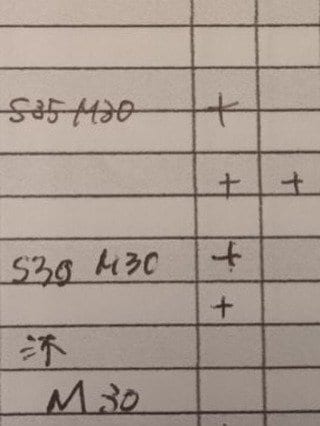 S35 M20 +
+ +
S30 M30 +
+
M 30